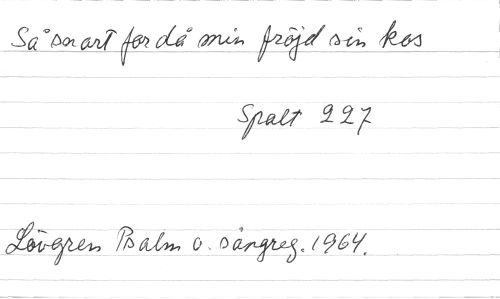 Så snart for då min fröjd sin kos
Spalt 227
Lövgren Psalm o. sångreg. 1964.